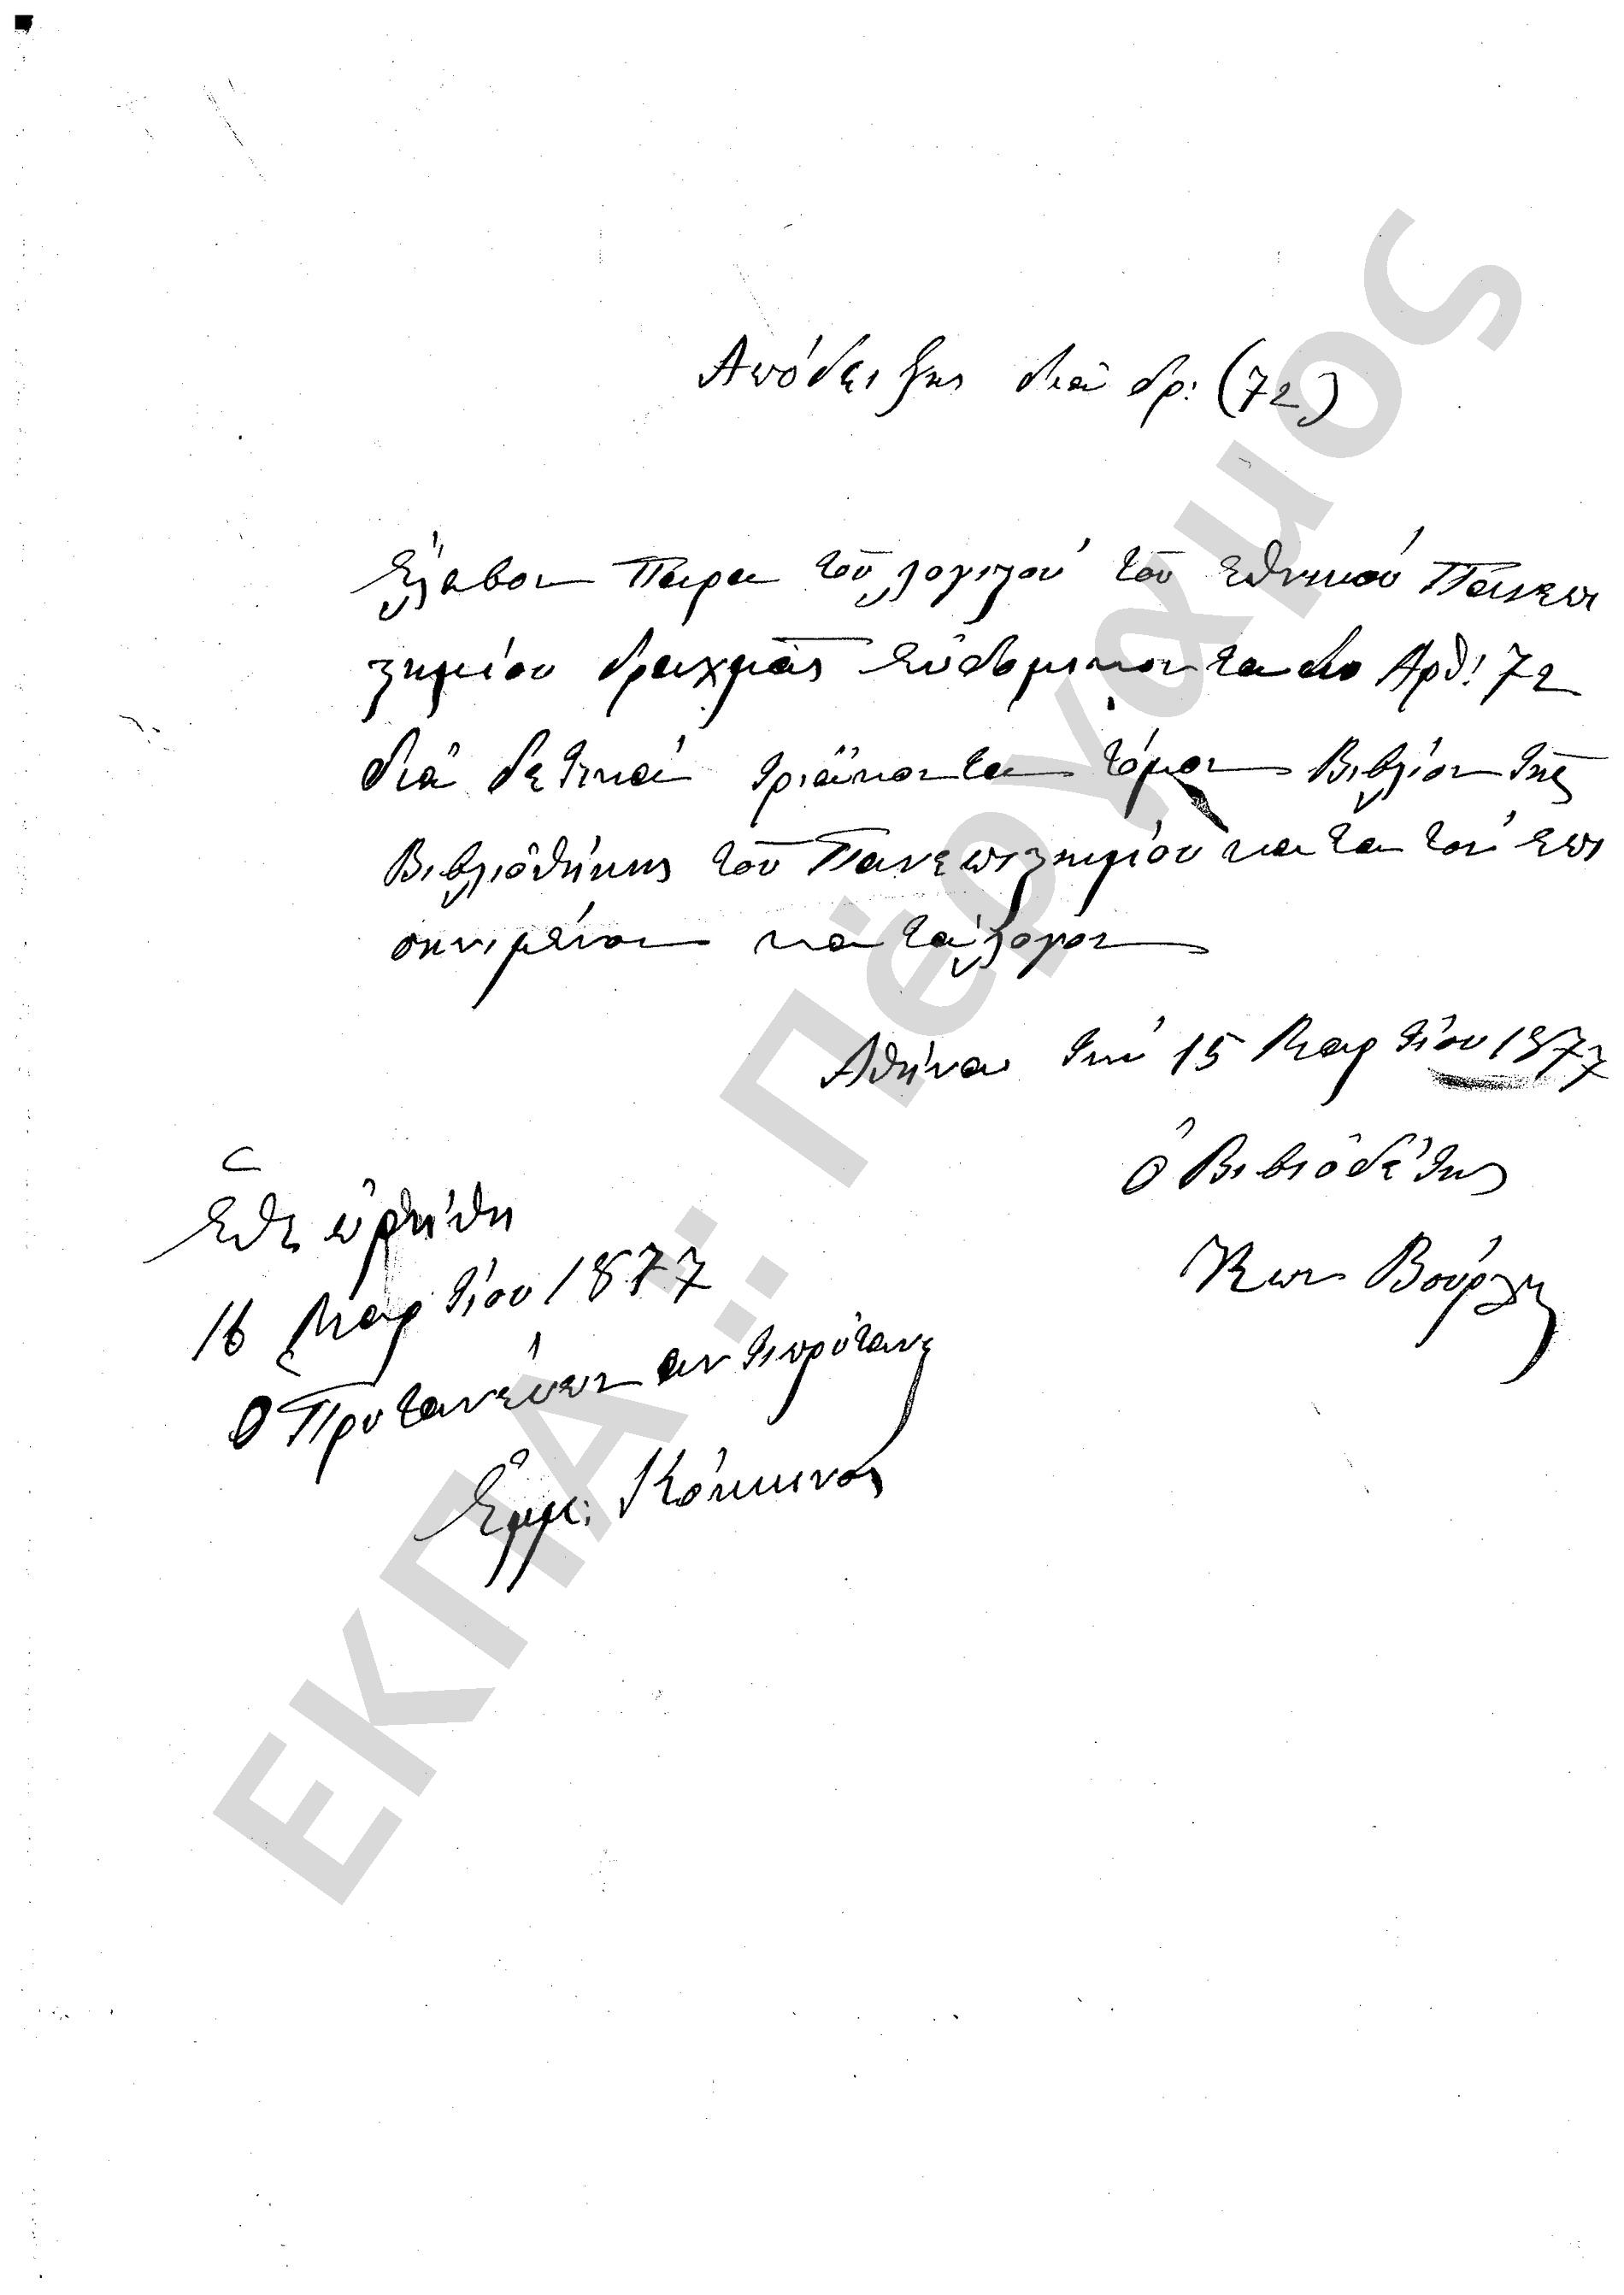 Απόδειξης διά δρ: (72)
Έλαβον Παρα τού λογιςού τού Εθνικού Πανεπι
ςημίου δραχμάς εύδομικοντα δυο Αρθ: 72
διά δετικά τριάκοντα τόμον Βιβλίον τής
Βιβλιοθήκης τού Πανεπιςημίου κατα τον επι
σηνιμένον κατάλογον
Αθήναι τη 15 Μαρτίου 1877
Ο Βιβιοδέτης
Κων Βούρλη
Εθεωρήθη
16 Μαρτίου 1877
Ο Πρυτανέυων αντιπρύτανις
Εμμ: Κόκκινος
ΕΚΠΑ :: Πέργαμος